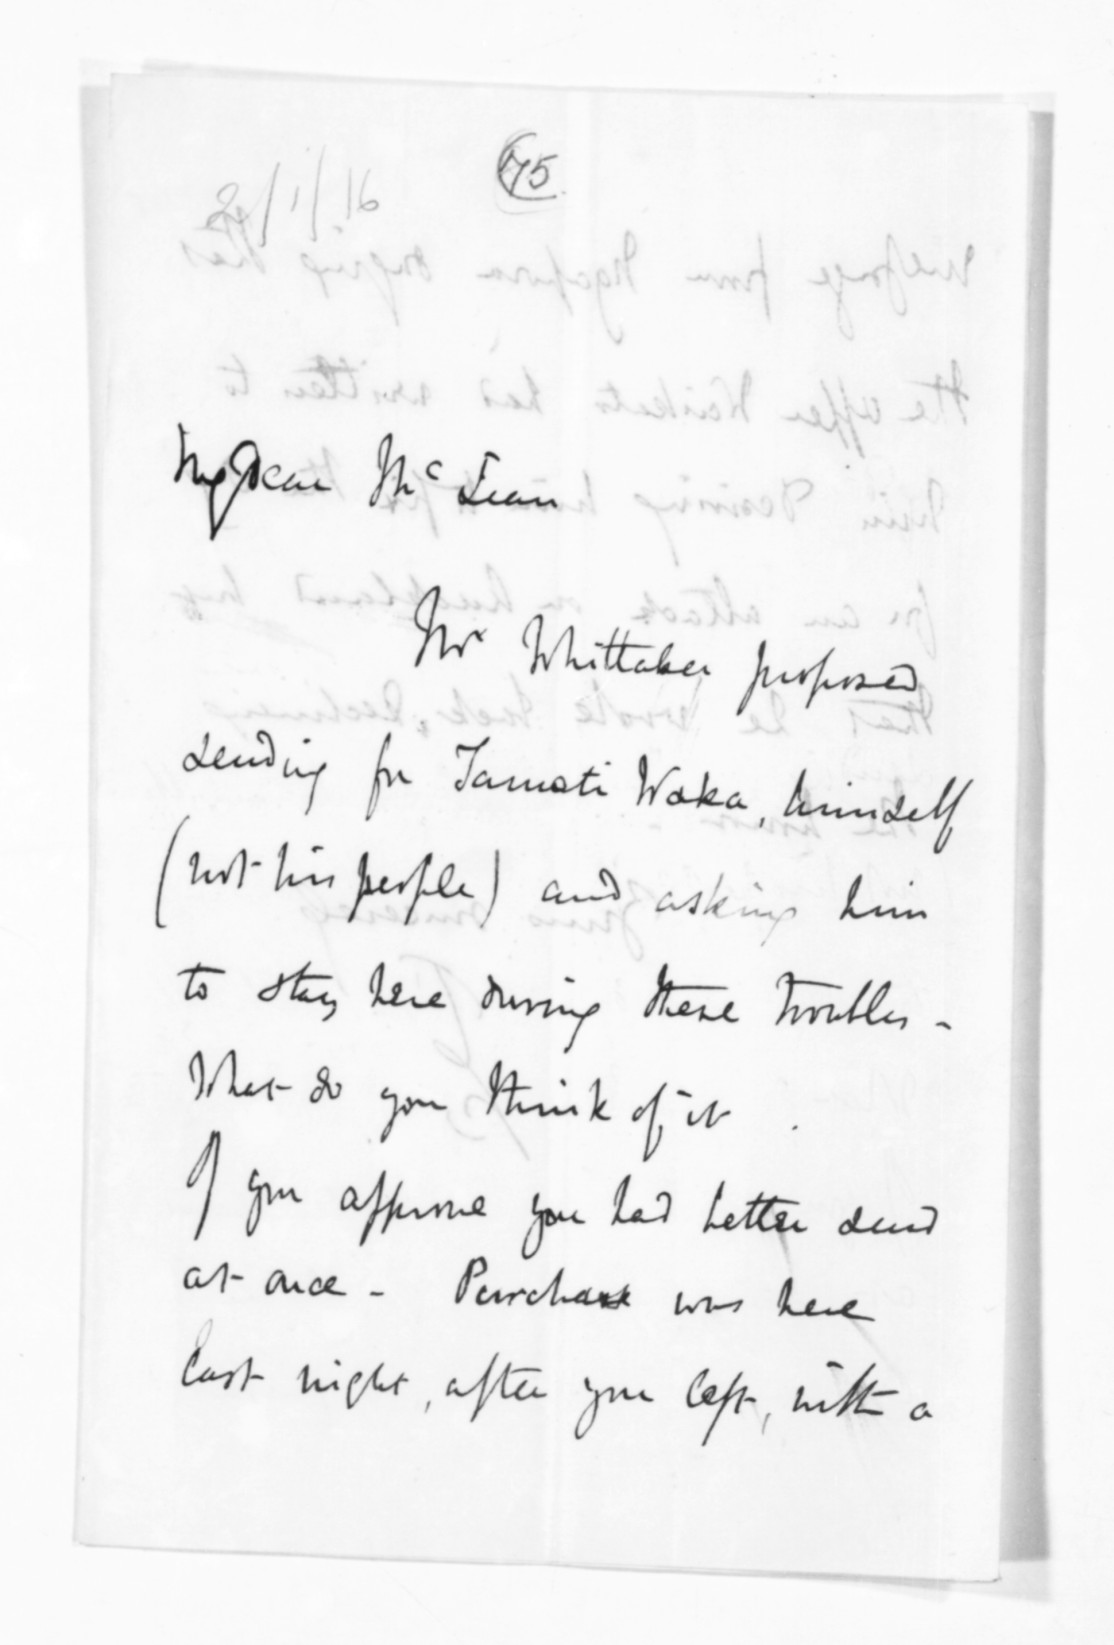 75
My Dear McLean
Mr Whittaker proposed
sending for Tamati Waka, himself
(not his people) and asking him
to stay here during these troubles -
What do you think of it .
If you approve you had better send
at once - Purchase was here
last night, after you left, with a